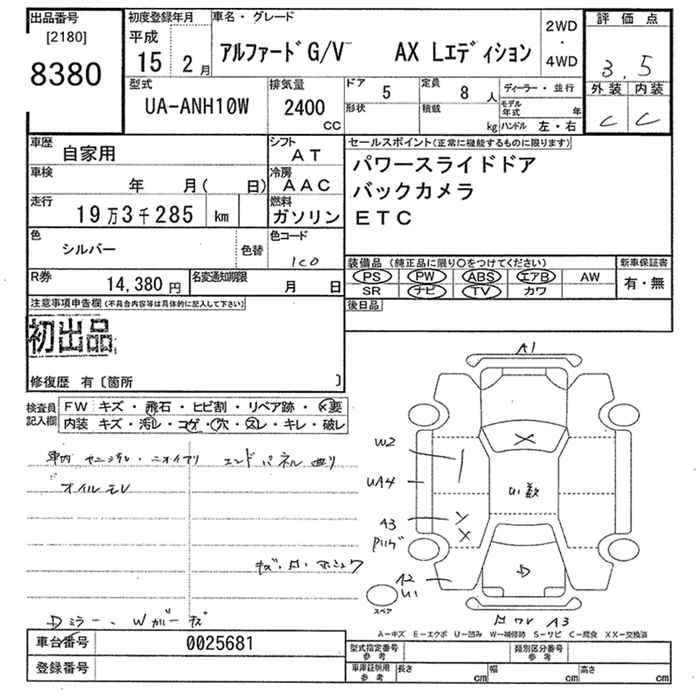 出品番号
[2180]
8380
初度登録年月
平成
15 2月
車名・グレード
アルファードG/V AX Lエディション
2WD
・
4WD
評価点
3.5
外装 内装
C C
型式
UA-ANH10W
排気量
2400
CC
ドア
5
定員
8 人
ディーラー・並行
形状
積載
kg
モデル
年式 年
ハンドル 左・右
車歴
自家用
シフト
AT
セールスポイント(正常に機能するものに限ります)
パワースライドドア
バックカメラ
ETC
車検
年 月( 日)
冷房
AAC
走行
19万3千285 km
燃料
ガソリン
色
シルバー
色替
色コード
1C0
装備品(純正品に限り○をつけてください)
PS PW ABS エアB AW
SR ナビ TV カワ
新車保証書
有・無
R券
14,380円
名変通知期限
月 日
後日品
注意事項申告欄(不具合内容等は具体的に記入して下さい)
初出品
修復歴 有〔箇所 〕
検査員
記入欄
FW キズ・飛石・ヒビ割・リペア跡・×要
内装 キズ・汚レ・コゲ・穴・スレ・キレ・破レ
A1
W2
UA4
A3
A2
U1
スペア
A3
D
オイルモレ
Dミラー
A-キズ E-エクボ U-凹み W-補修跡 S-サビ C-腐食 XX-交換済
車台番号 0025681
登録番号
型式指定番号
参考
類別区分番号
参考
車庫証明用
参考
長さ cm
幅 cm
高さ cm